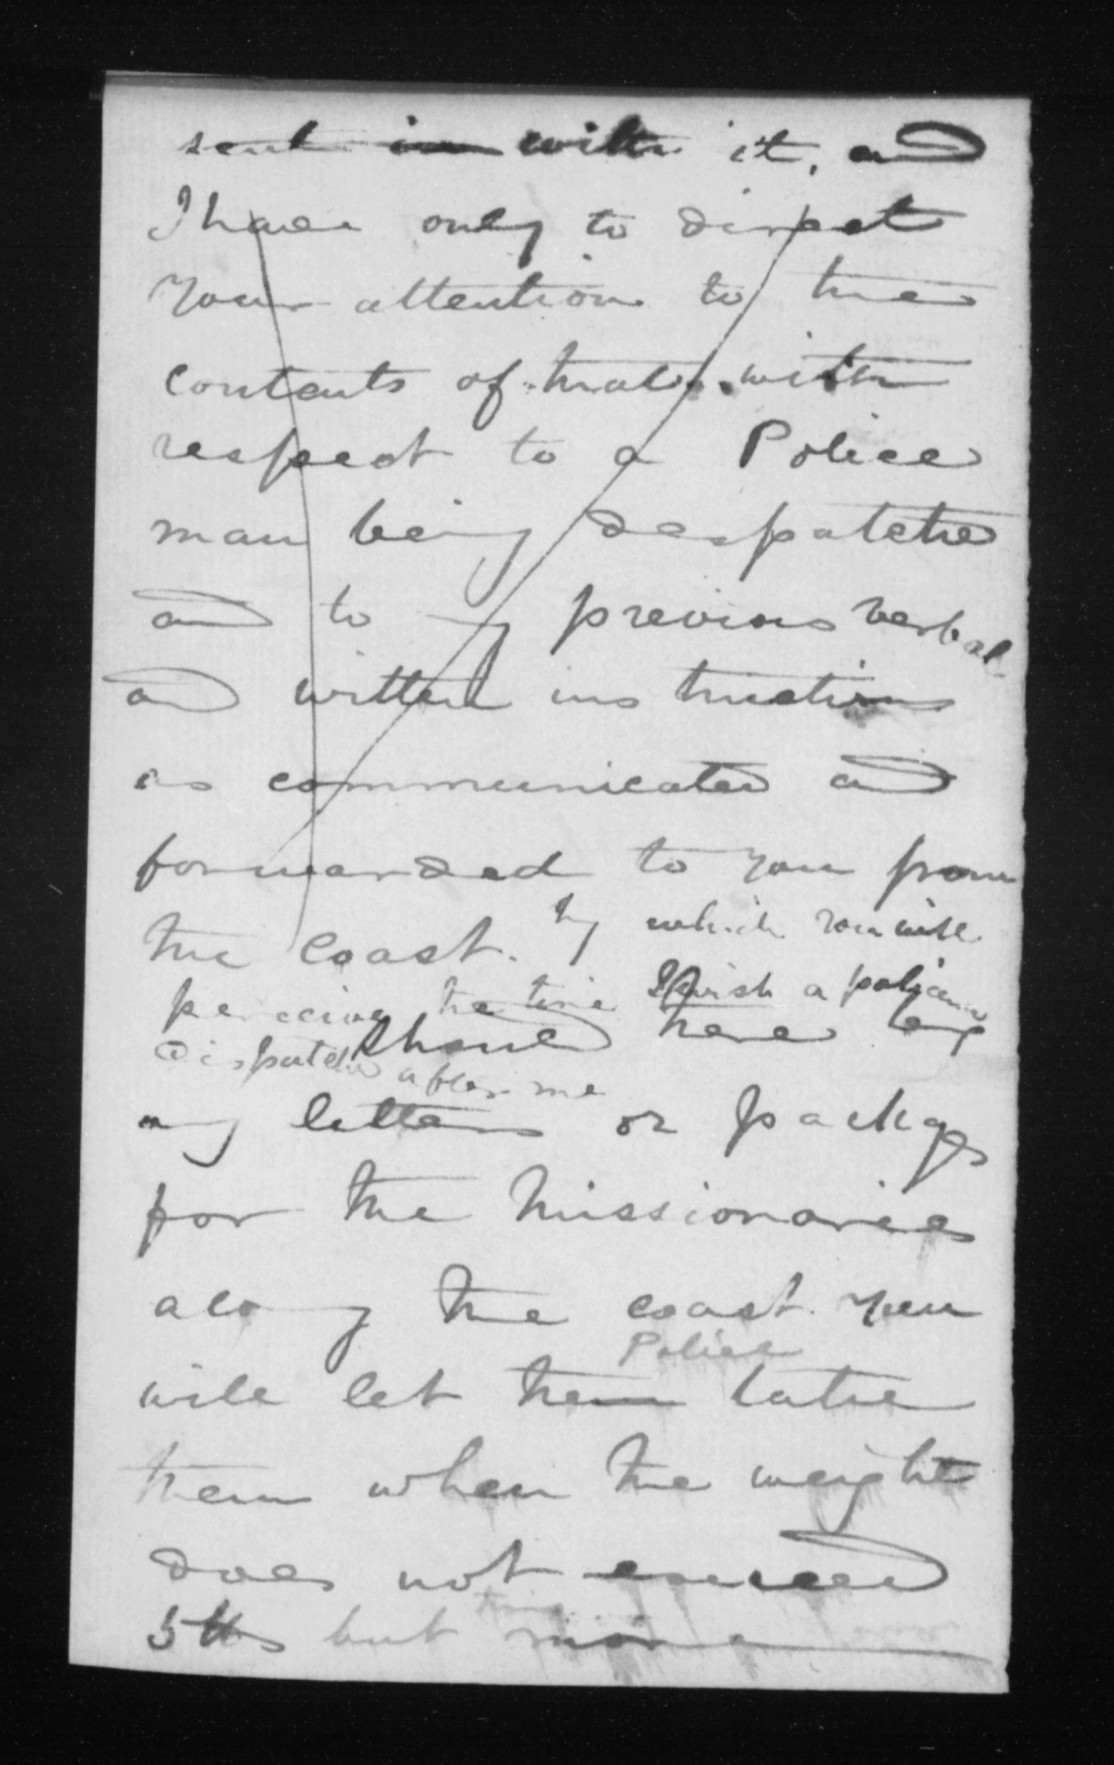 sent in with it, and
I have only to direct
your attention to the
contents of that with
respect to a Police
man being despatched
and to my previous verbal
and written instructions
as communicated and
forwarded to you from
the coast. by which you will
perceive the time I wish a policeman
dispatched after me
Should there be
any letters or packages
for the Missionaries
along the coast. you
Police
will let them take
them when the weight
does not exceed
5 lbs but